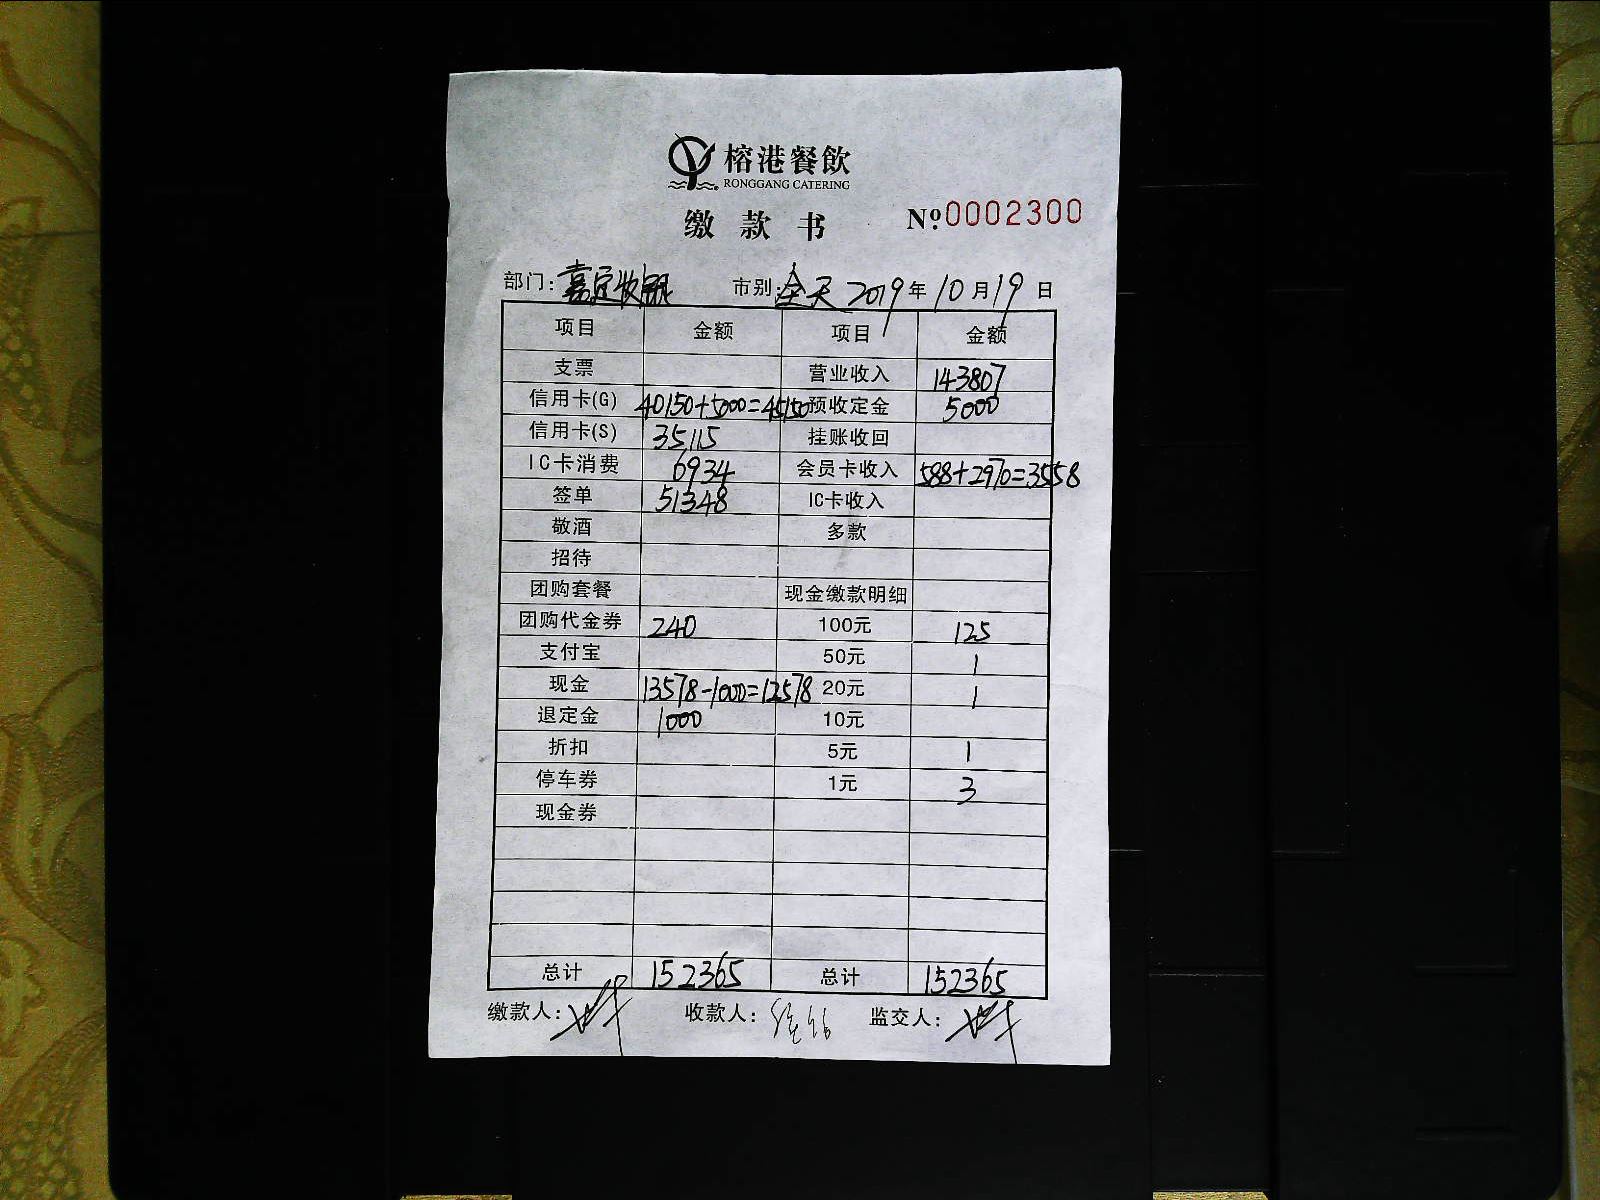 榕港餐飲
RONGGANG CATERING
缴款书 №:0002300
部门: 嘉定收银 市别: 全天 2019年10月19日
项目 金额 项目 金额
支票 营业收入 143807
信用卡(G) 40150+5000=45150 预收定金 5000
信用卡(S) 35115 挂账收回
IC卡消费 6934 会员卡收入 588+2970=3558
签单 51348 IC卡收入
敬酒 多款
招待
团购套餐 现金缴款明细
团购代金券 240 100元 125
支付宝 50元 1
现金 13578-1000=12578 20元 1
退定金 1000 10元
折扣 5元 1
停车券 1元 3
现金券
总计 152365 总计 152365
缴款人: 收款人: 监交人: